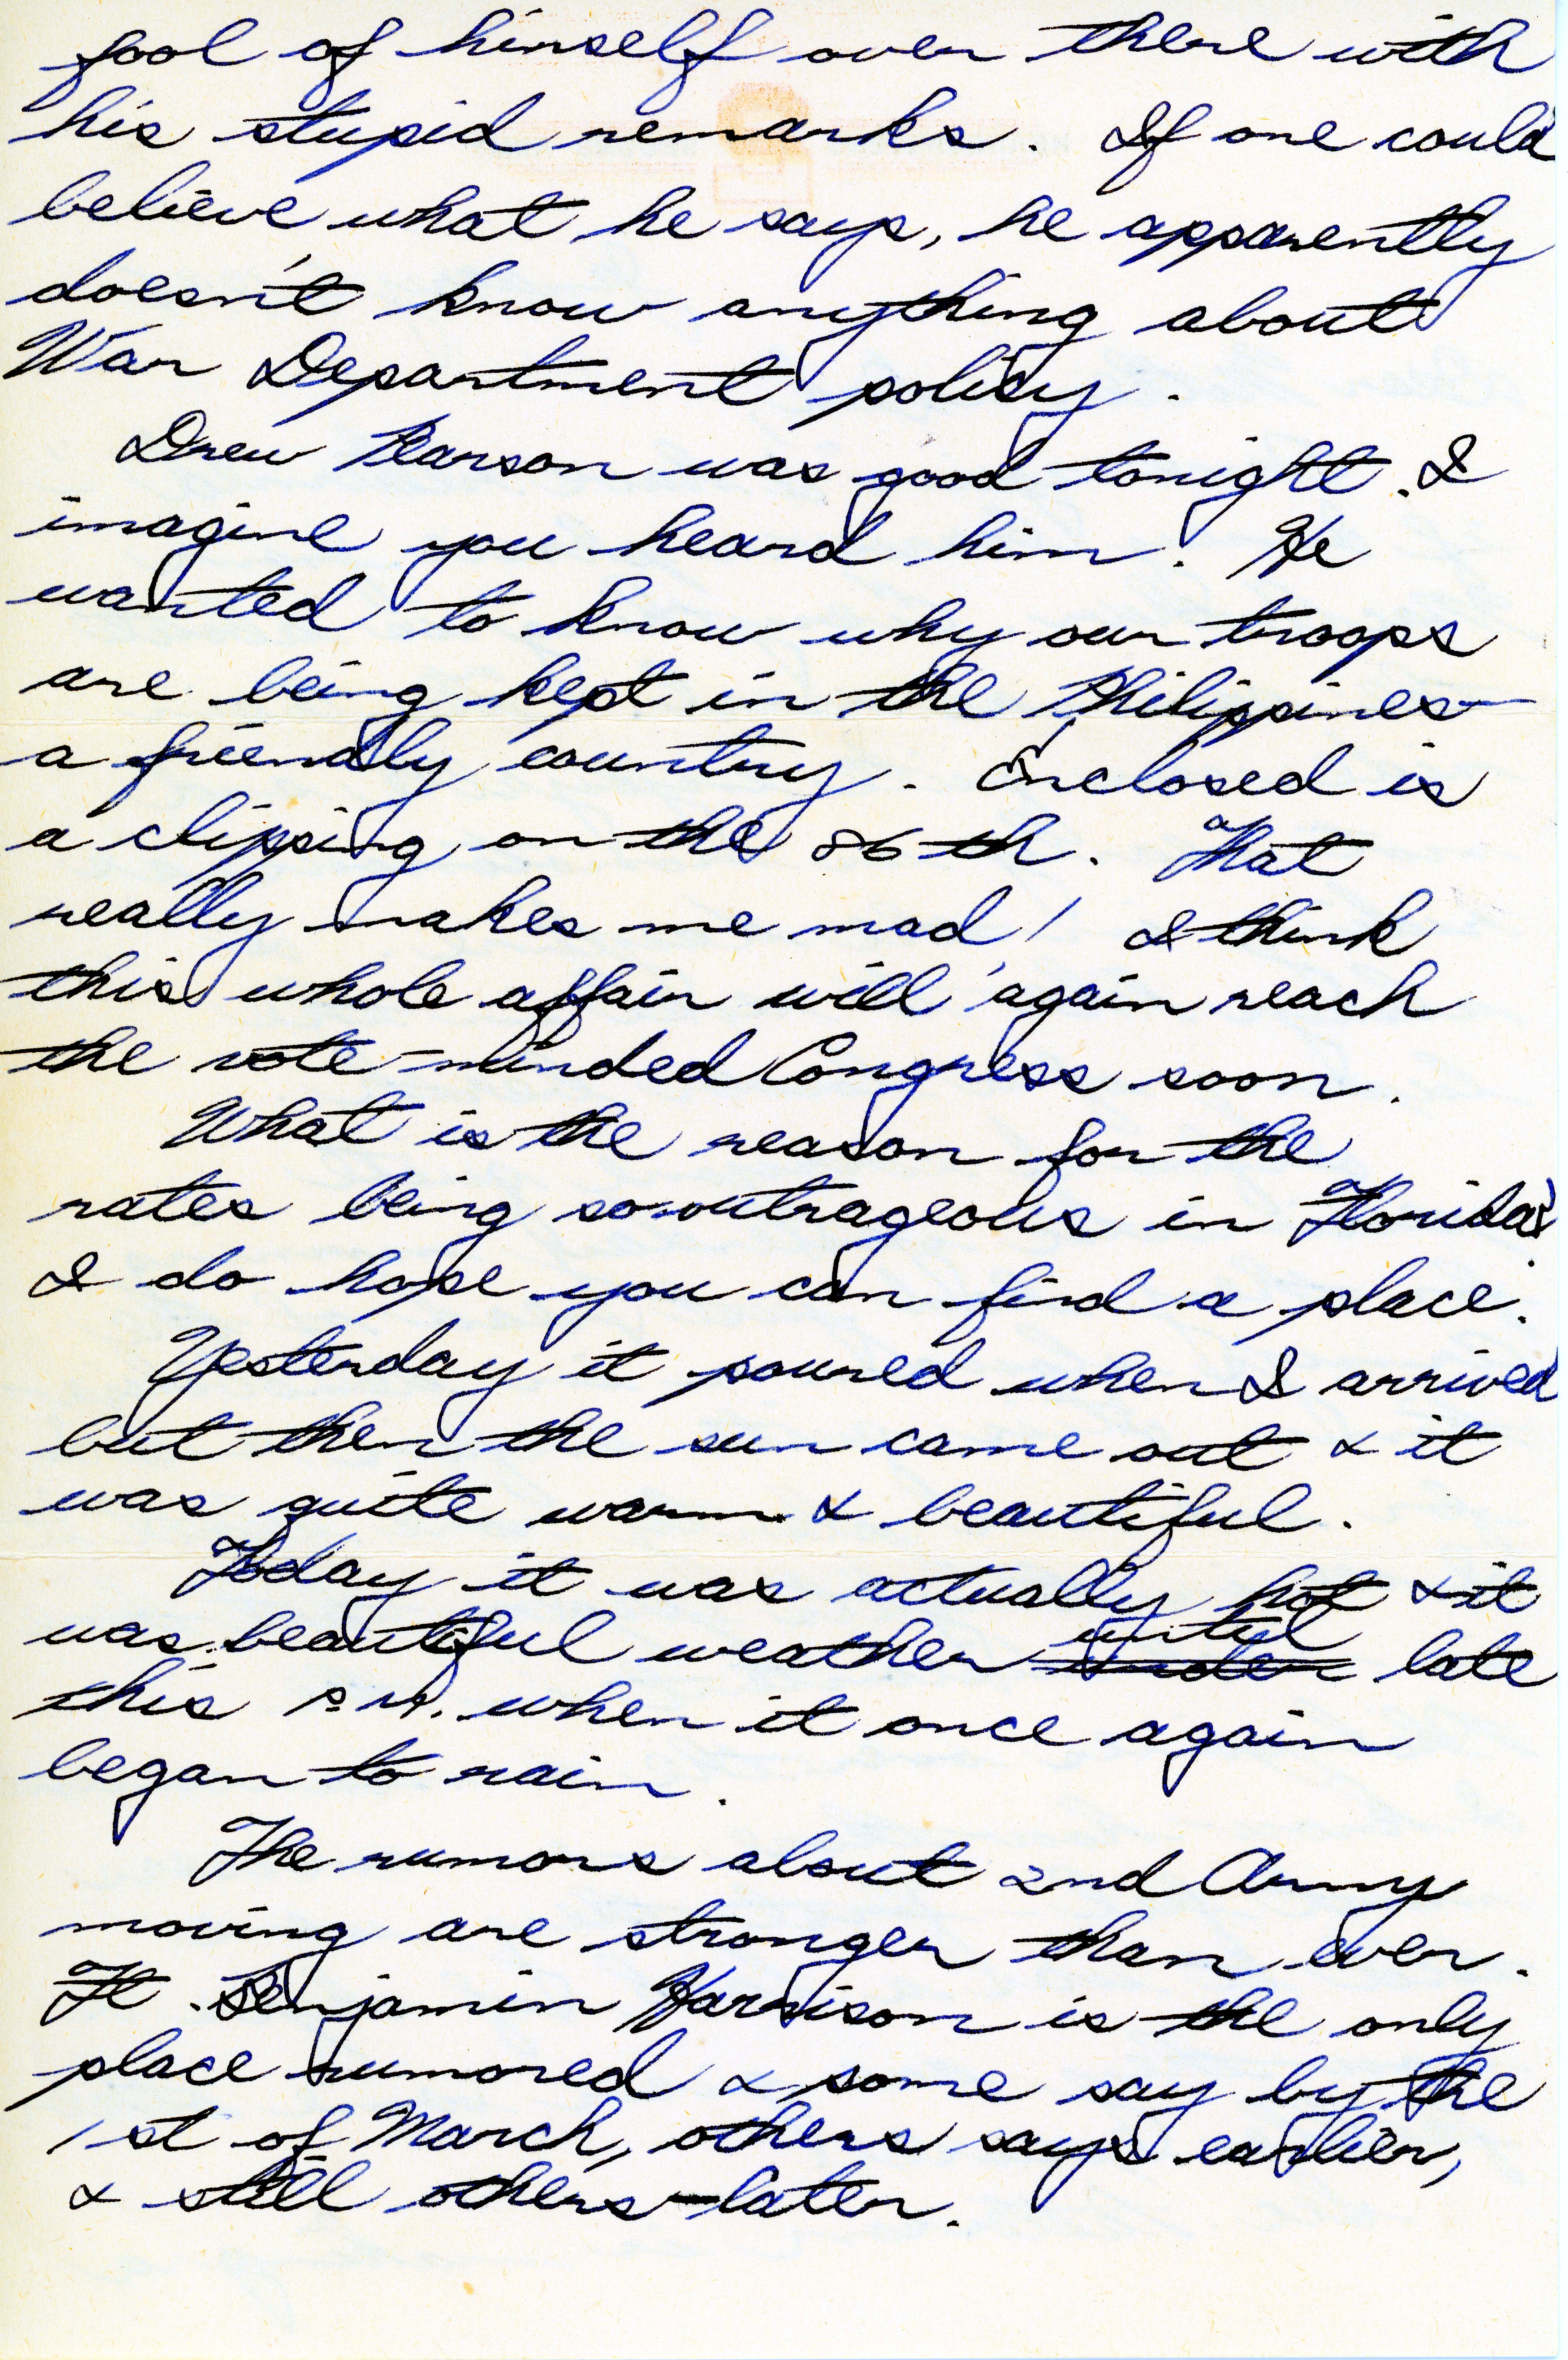 fool of himself over there with
his stupid remarks. If one could
believe what he says, he apparently
doesn't know anything about
War Department policy.
Drew Pearson was good tonight. I
imagine you heard him. He
wanted to know why our troops
are being kept in the Philippines—
a friendly country. Enclosed is
a clipping on the 86th. That
really makes me mad! I think
this whole affair will again reach
the vote-minded Congress soon.
What is the reason for the
rates being so outrageous in Florida?
I do hope you can find a place.
Yesterday it poured when I arrived
but then the sun came out & it
was quite warm & beautiful.
Today it was actually hot & it
was beautiful weather until late
this P.M. when it once again
began to rain.
The rumors about 2nd Army
moving are stronger than ever.
Ft. Benjamin Harrison is the only
place rumored & some say by the
1st of March, others says earlier,
& still others—later.